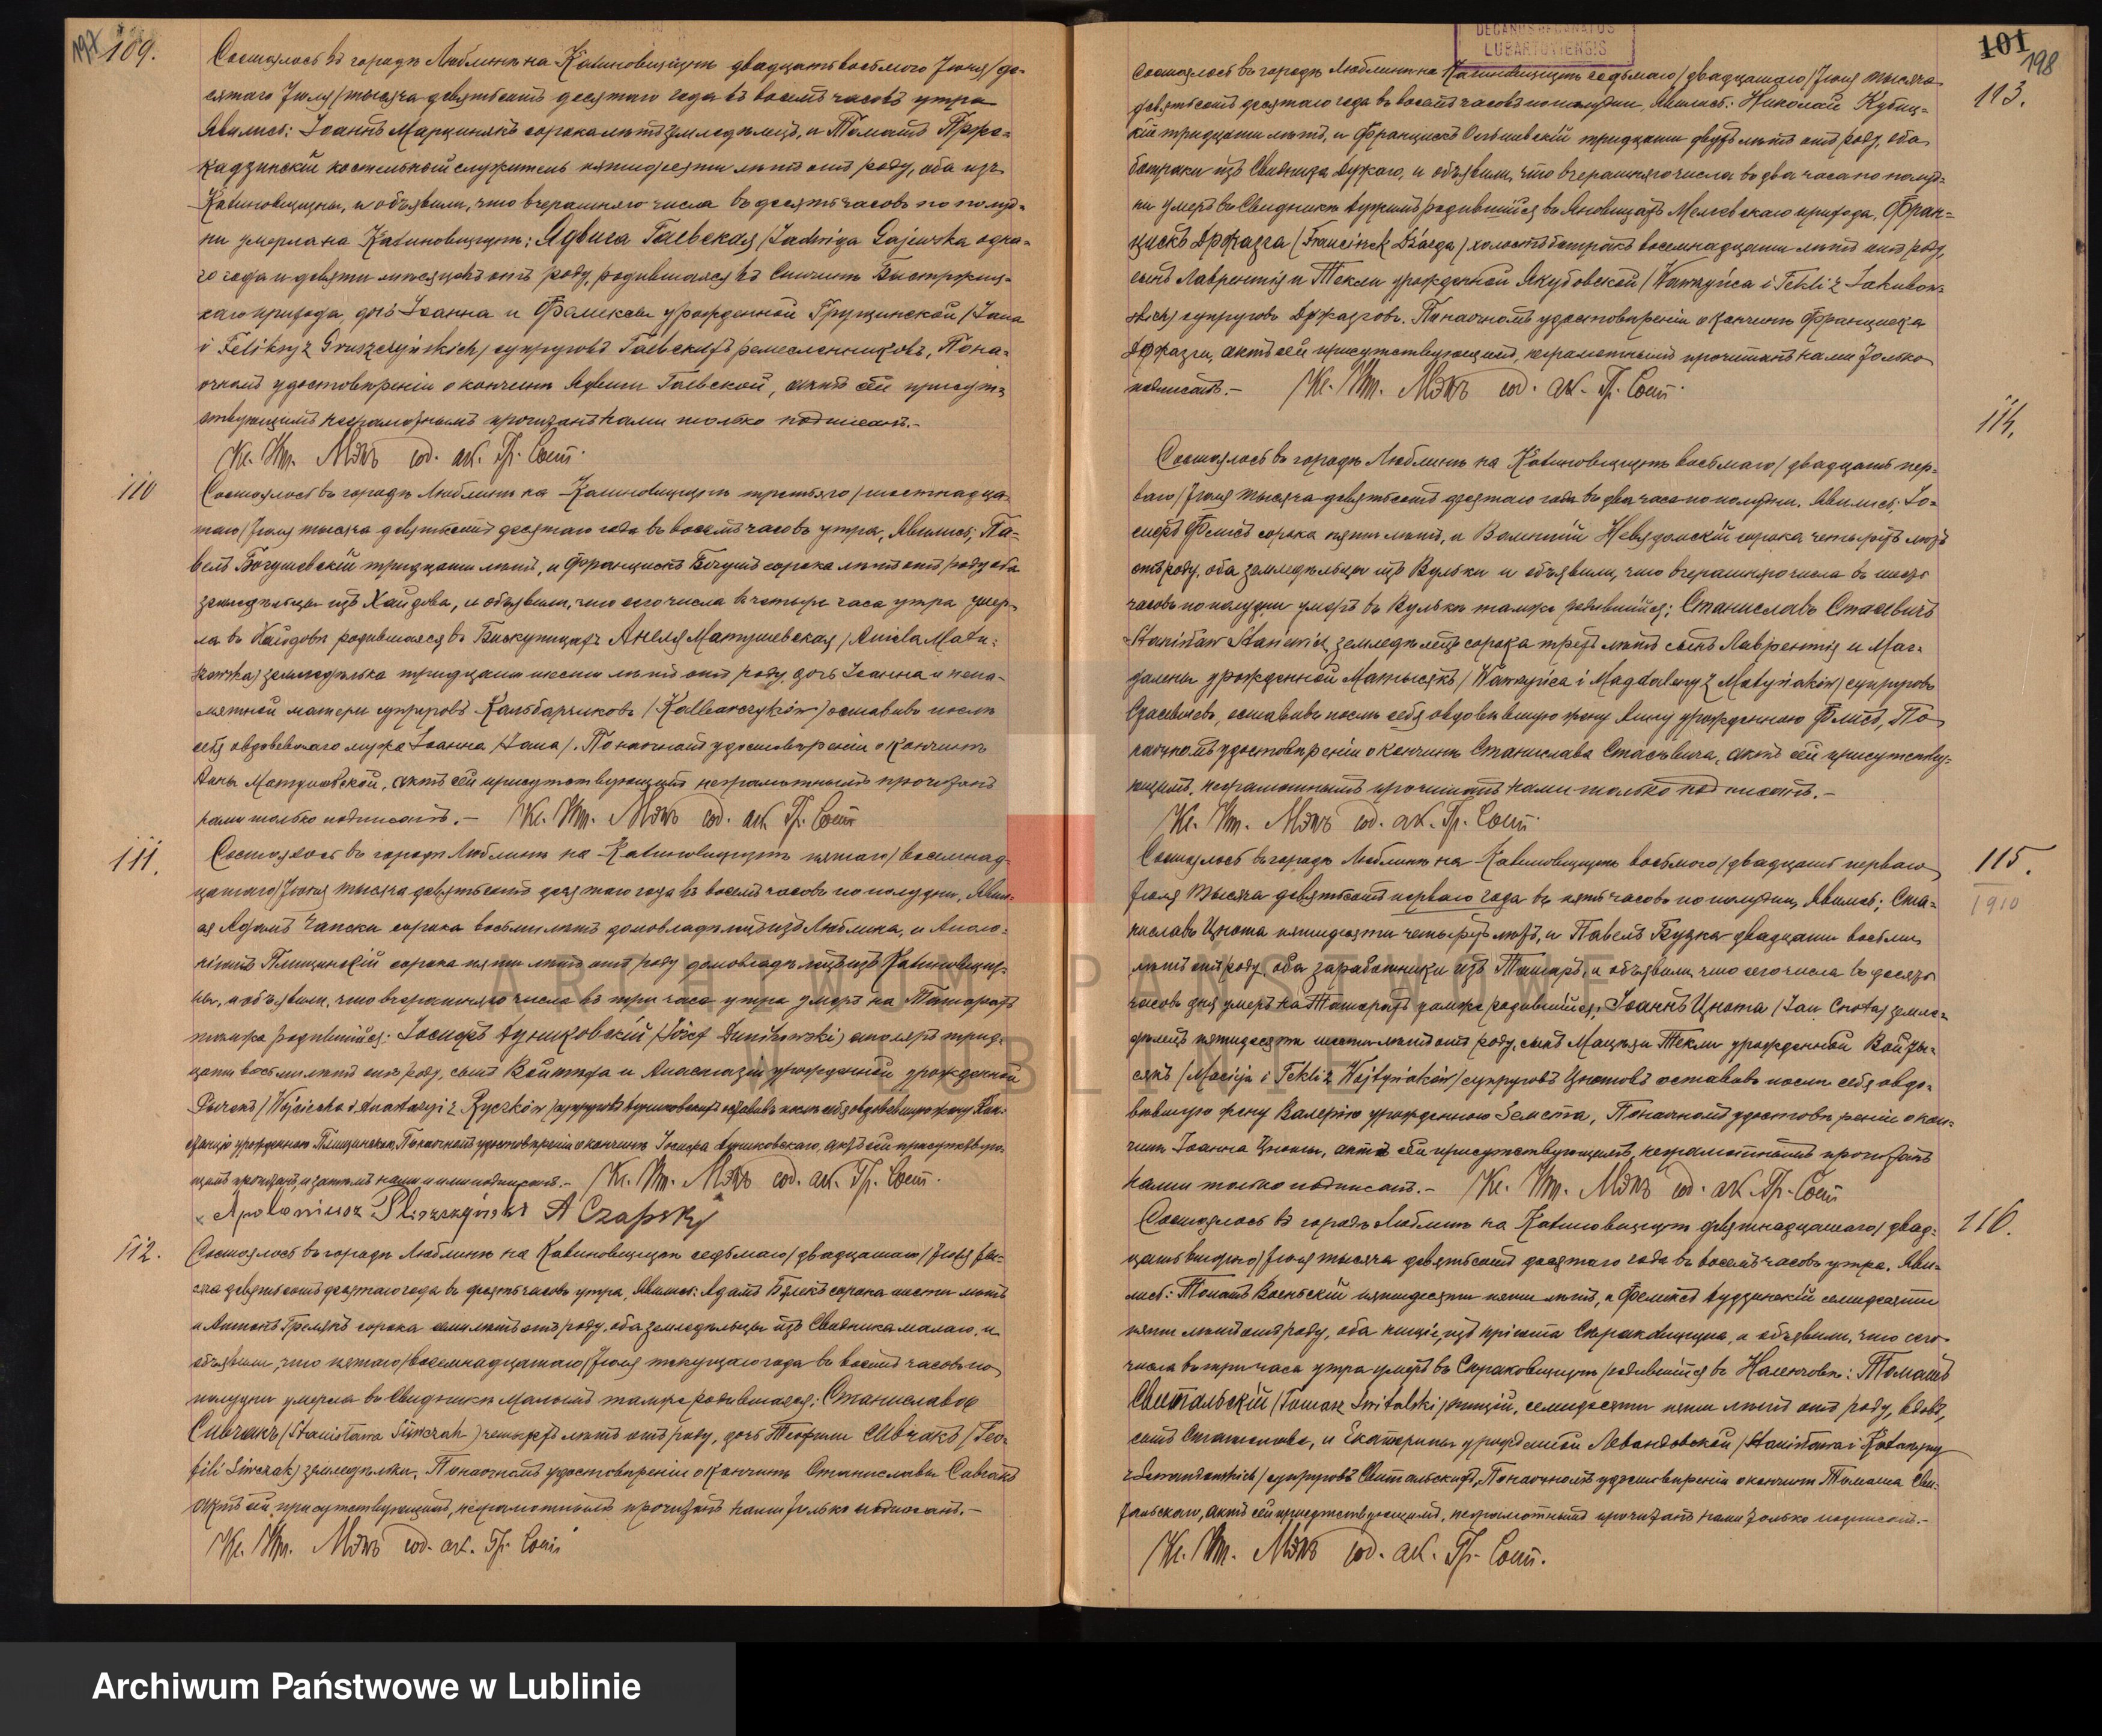 197
109.
Состоялось въ городѣ Люблинѣ на Калиновщизнѣ двадцать восьмого Іюня/де-
сятаго Іюля/тысяча девятьсотъ десятаго года въ восемь часовъ утра
Явились: Іоаннъ Марцинякъ сорока лѣтъ земледѣлецъ, и Томашъ
костельный служитель пятидесяти лѣтъ отъ роду, оба изъ
Калиновщизны, и объявили, что вчерашняго числа въ десять часовъ по полуд-
ни умерла на Калиновщизнѣ: Ядвига Гаевская /Jadwiga Gajewska одно-
го года и девяти мѣсяцевъ отъ роду, родившаяся въ
каго прихода, дочь Іоанна и Феликсы урожденной Грущинской /Jana
i Feliksy z Gruszczyńskich/ супруговъ Гаевскихъ ремесленниковъ, По на-
очномъ удостовѣреніи о кончинѣ Ядвиги Гаевской, актъ сей присут-
ствующимъ неграмотнымъ прочитанъ нами только подписанъ.-
110
Состоялось въ городѣ Люблинѣ на Калиновщизнѣ третьяго/шестнадца-
таго/Іюля тысяча девятьсотъ десятаго года въ восемь часовъ утра, Явились; Па-
велъ Богушевскій тридцати лѣтъ, и Францискъ сорока лѣтъ отъ роду оба
земледѣльцы изъ Хайдова, и объявили, что сего числа въ четыре часа утра умер-
ла въ Хайдовѣ родившаяся въ Бискупицахъ Анеля Матушевская /Aniela Matu-
szewska/ земледѣлька тридцати шести лѣтъ отъ роду, дочь Іоанна и непа-
мятной матери супруговъ Кальбарчиковъ /Kalbarczyków/ оставивъ послѣ
себя овдовевшаго мужа Іоанна /Jana/. По наочномъ удостовѣреніи о кончинѣ
Матушевской, актъ сей присутствующимъ неграмотнымъ прочитанъ
нами только подписанъ.-
111.
Состоялось въ городѣ Люблинѣ на Калиновщизнѣ пятаго/восемнад-
цатаго/Іюля тысяча девятьсотъ десятаго года въ восемь часовъ по полудни, Явил-
ся Адамъ Чапски сорока восьми лѣтъ домовладѣлецъ изъ Люблина, и Аполо-
Плищинскій сорока пяти лѣтъ отъ роду домовладѣлецъ изъ Калиновщиз-
ны, и объявили, что вчерашняго числа въ три часа утра умеръ на Татарахъ
тамже родившійся: Іосифъ Дуниковскій /Józef Dunikowski/ столяръ трид-
цати восьми лѣтъ отъ роду, сынъ Войтѣха и Анастазіи урожденной урожденной
Рычекъ /Wojciecha i Anastazyi z Ryczków/ супруговъ Дуниковскихъ оставивъ послѣ себя овдовевшую жену
урожденною Плищинскую, По наочномъ удостовѣреніи о кончинѣ Іосифа Дуниковскаго, актъ сей присутствую-
щимъ прочитанъ, и затѣмъ нами и ими подписанъ.-
Apolaniusz Pliszczyński A Czapsky
112.
Состоялось въ городѣ Люблинѣ на Калиновщизнѣ седьмаго/двадцатаго/Іюля ты-
сяча девятьсотъ десятаго года въ десять часовъ утра, Явились: Адамъ сорока шести лѣтъ
и Антонъ Гремякъ сорока семи лѣтъ отъ роду, оба земледѣльцы изъ Свидника малаго, и
объявили, что пятаго/восемнадцатаго/Іюля текущаго года въ восемь часовъ по
полудни умерла въ Свидникѣ Маломъ тамже родившаяся: Станислава
Сивчакъ /Stanisława Siwczak/ четырехъ лѣтъ отъ роду, дочь Теофили Сивчакъ /Teo-
fili Siwczak/ земледѣльки, По наочномъ удостовѣреніи о кончинѣ Станиславы Сивчакъ
актъ сей присутствующимъ, неграмотнымъ прочитанъ нами только подписанъ.-
DECANUS DECANATUS
LUBARTOVIENSIS
101
198
113.
Состоялось въ городѣ Люблинѣ на Калиновщизнѣ седьмаго/двадцатаго/Іюля тысяча
девятьсотъ десятаго года въ восемь часовъ по полудни, Явились: Николай Кубиц-
кій тридцати лѣтъ, и Францискъ тридцати двухъ лѣтъ отъ роду, оба
батраки изъ Свидника Дужаго, и объявили, что вчерашняго числа въ два часа по полуд-
ни умеръ въ Свидникѣ Дужимъ родившійся въ Яновицахъ Мелгевскаго прихода, Фран-
цискъ Држазга /Franciszek Drżazga/ холостъ батракъ восемнадцати лѣтъ отъ роду,
сынъ Лаврентія и Текли урожденной Якубовской /Wawrzyńca i Tekli z Jakubow-
skich/ супруговъ Држазговъ. По наочномъ удостовѣреніи о кончинѣ Франциска
Држазги, актъ сей присутствующимъ, неграмотнымъ прочитанъ нами только
подписанъ.-
114.
Состоялось въ городѣ Люблинѣ на Калиновщизнѣ восьмаго/двадцать пер-
ваго/Іюля тысяча девятьсотъ десятаго года въ два часа по полудни. Явились; Іо-
сифъ Фелисъ сорока пяти лѣтъ, и Валентій Невядомскій сорока четырехъ лѣтъ
отъ роду, оба земледѣльцы изъ Вульки и объявили, что вчерашняго числа въ шесть
часовъ по полудни умеръ въ Вулькѣ тамже родившійся; Станиславъ Стасевичъ
Stanisław Stasiewicz земледѣлецъ сорока трехъ лѣтъ сынъ Лаврентія и Маг-
далены урожденной Матысякъ /Wawrzyńca i Magdaleny z Matysiaków/ супруговъ
Стасевичъ, оставивъ послѣ себя овдовѣвшую жену Анну урожденною Фелисъ, По
наочномъ удостовѣреніи о кончинѣ Станислава Стасевича, актъ сей присутству-
ющимъ, неграмотнымъ прочитанъ нами только подписанъ.-
115.
1910
Состоялось въ городѣ Люблинѣ на Калиновщизнѣ восьмого/двадцать перваго
Іюля тысяча девятьсотъ перваго года въ пять часовъ по полудни, Явились; Ста-
ниславъ Цнота пятидесяти четырехъ лѣтъ, и Павелъ Буцка двадцати восьми
лѣтъ отъ роду, оба заработники изъ Татаръ, и объявили, что сего числа въ десять
часовъ дня умеръ на Татарахъ тамже родившійся, Іоаннъ Цнота /Jan Cnota/ земле-
дѣлецъ пятидесяти шести лѣтъ отъ роду, сынъ Мацѣя и Текли урожденной Войты-
сякъ /Macieja i Tekli z Wojtysiaków/ супруговъ Цнотовъ оставивъ послѣ себя овдо-
вѣвшую жену Валерію урожденною Земста, По наочномъ удостовѣреніи о кон-
чинѣ Іоанна Цноты, актъ сей присутствующимъ, неграмотнымъ прочитанъ
нами только подписанъ.-
116.
Состоялось въ городѣ Люблинѣ на Калиновщизнѣ девятнадцатаго/двад-
цать второго/Іюля тысяча девятьсотъ десятаго года въ восемь часовъ утра, Яви-
лись: Томашъ пятидесяти пяти лѣтъ, и Феликсъ Дудзинскій семидесяти
пяти лѣтъ отъ роду, оба нищіе, изъ пріюта и объявили, что сего
числа въ три часа утра умеръ въ родившійся въ Наленчовѣ: Томашъ
Свитальскій /Tomasz Świtalski/ нищій, семидесяти пяти лѣтъ отъ роду, вдовъ,
сынъ Станислава, и Екатерины урожденной Левандовской /Stanisława i Katarzyny
z Lewandowskich/ супруговъ Свитальскихъ, По наочномъ удостовѣреніи о кончинѣ Томаша Сви-
тальскаго, актъ сей присутствующимъ, неграмотнымъ прочитанъ нами только подписанъ.-
ARCHIWUM PAŃSTWOWE
W LUBLINIE
Archiwum Państwowe w Lublinie